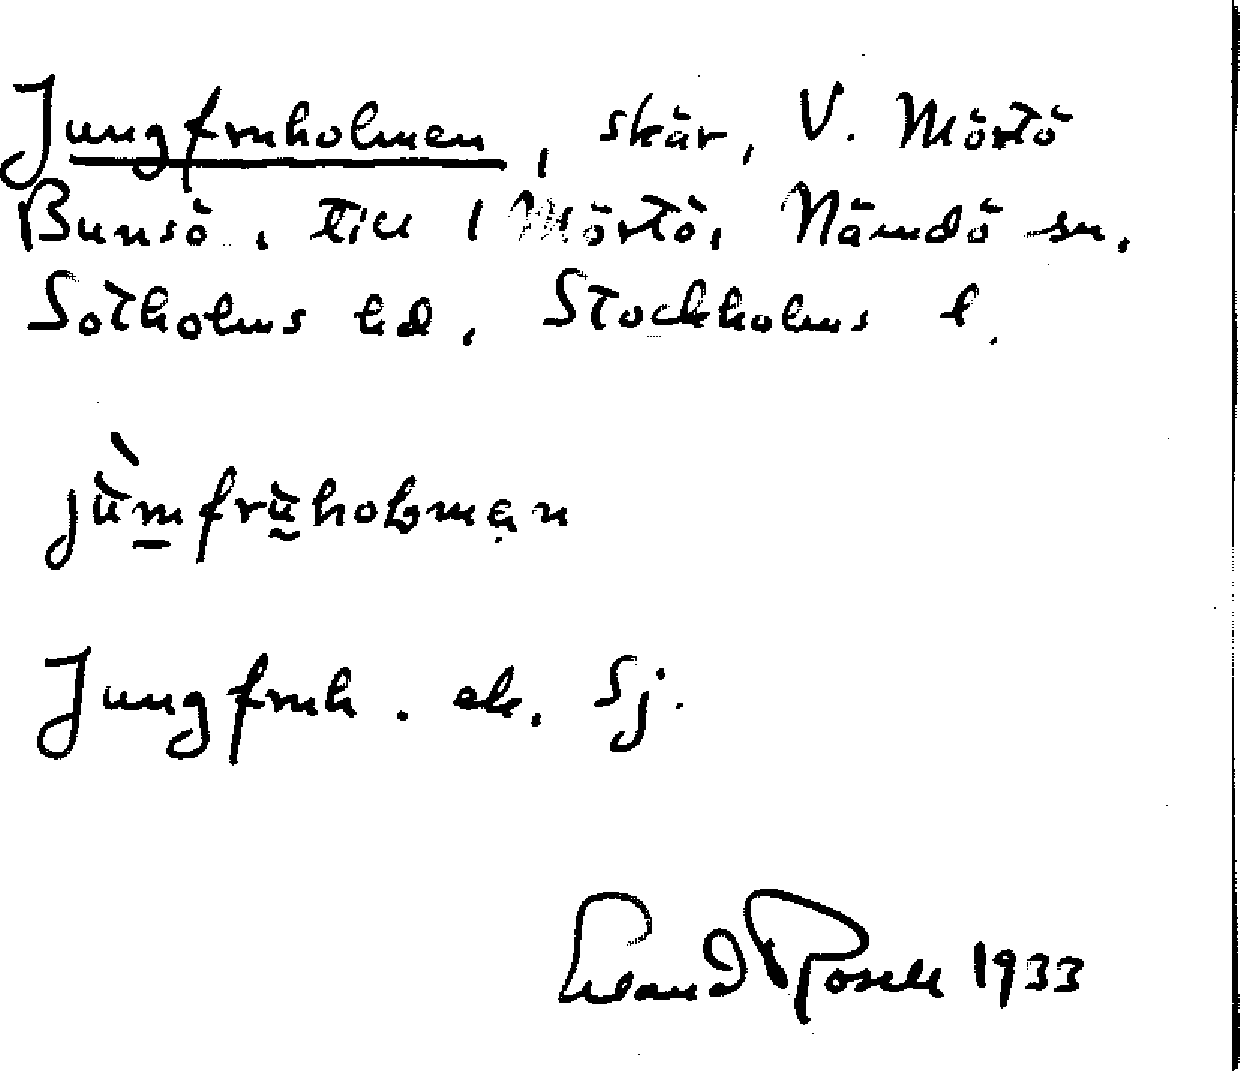 Jungfruholmen, skär, V. Mörtö
Bunsö, till 1 Mörtö, Nämdö sn,
Sotholms hd, Stockholms l.
jùmfrùholmen
Jungfruh. ek. Sj.
Erland Rosell 1933